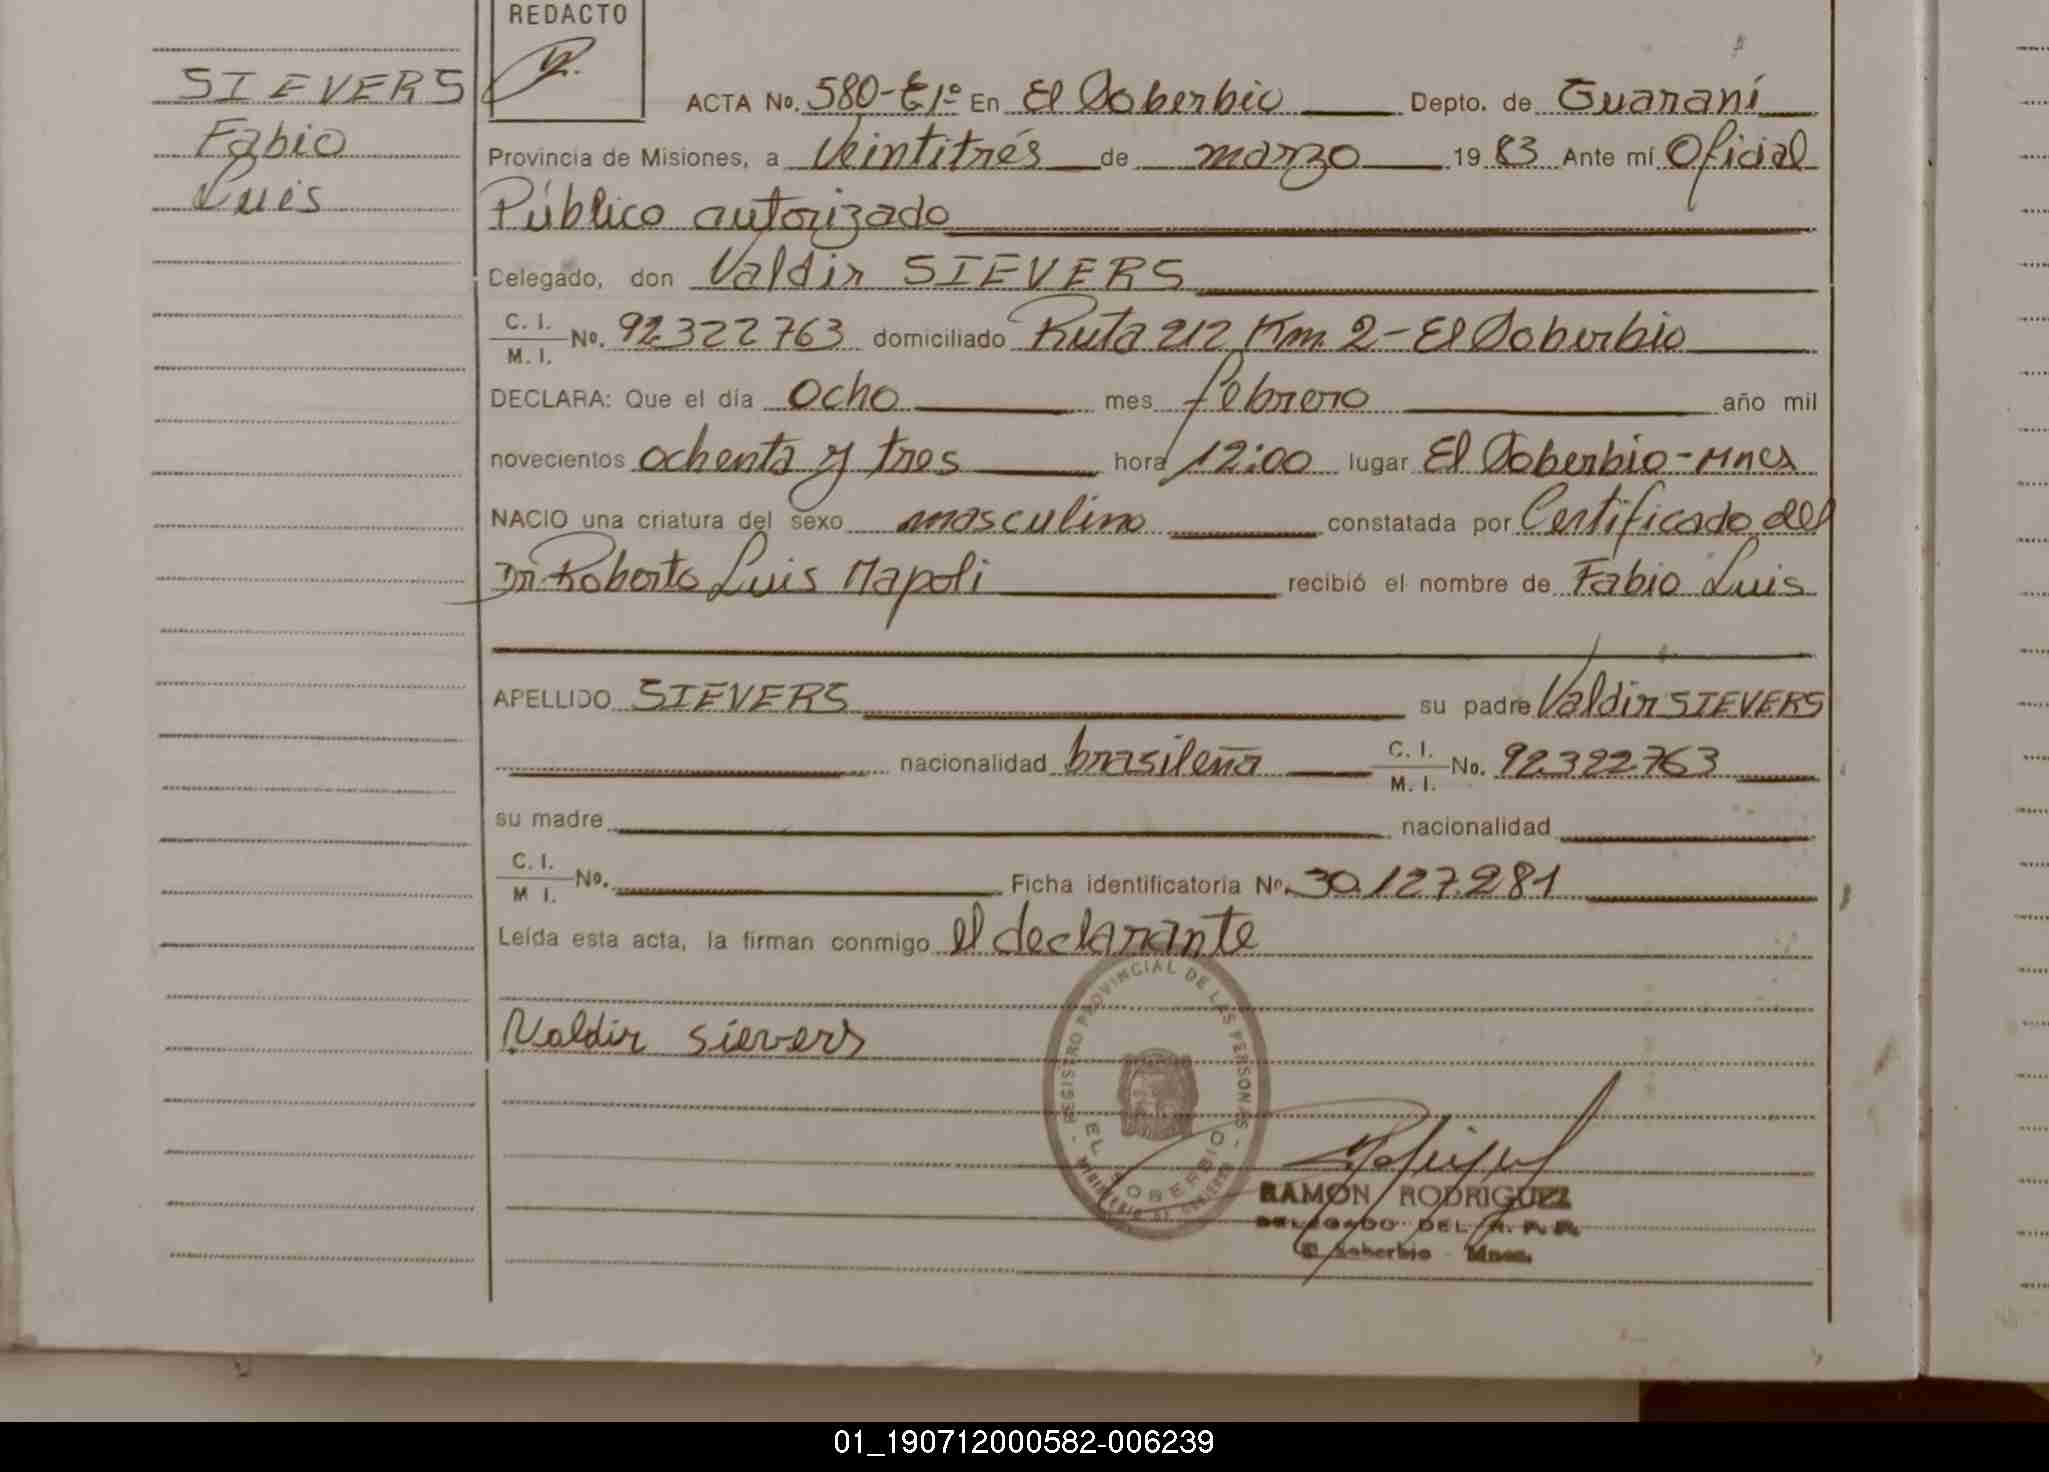 REDACTO
SIEVERS
Fabio
Luis
ACTA No. 580-E1º En El Soberbio Depto. de Guaraní
Provincia de Misiones, a Veintitrés de marzo 19 83 Ante mí Oficial
Público autorizado
Delegado, don Valdir SIEVERS
C. I.
M. I. No. 92322763 domiciliado Ruta 212 Km. 2 - El Soberbio
DECLARA: Que el día ocho mes febrero año mil
novecientos ochenta y tres hora 12:00 lugar El Soberbio - Mnes
NACIO una criatura del sexo masculino constatada por Certificado del
Dr. Roberto Luis Napoli recibió el nombre de Fabio Luis
APELLIDO SIEVERS su padre Valdir SIEVERS
nacionalidad brasileña C. I.
M. I. No. 92322763
su madre nacionalidad
C. I.
M I. No. Ficha identificatoria No. 30.127.281
Leída esta acta, la firman conmigo el declarante
Valdir sievers
- REGISTRO PROVINCIAL DE LAS PERSONAS -
EL SOBERBIO
MINISTERIO DE GOBIERNO
RAMON RODRIGUEZ
DELEGADO DEL R. P. P.
El Soberbio - Mnes.
01_190712000582-006239